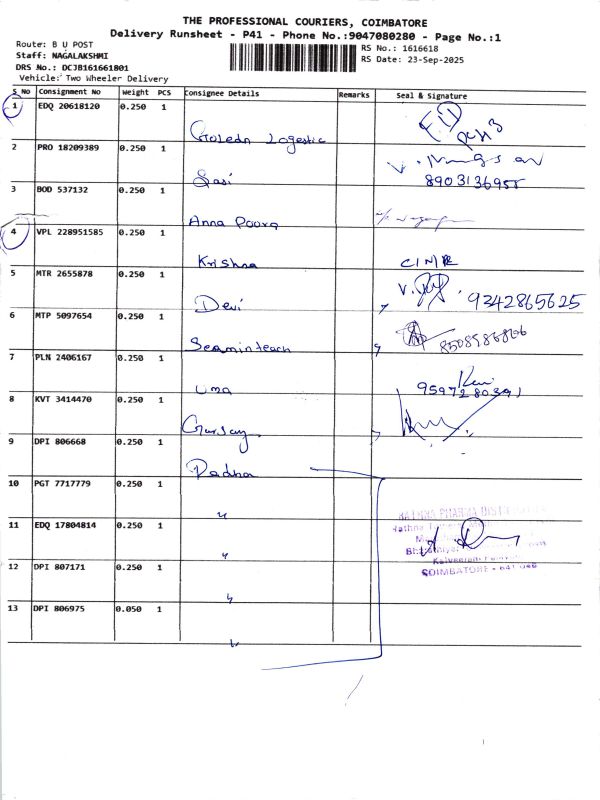 THE PROFESSIONAL COURIERS, COIMBATORE
Delivery Runsheet - P41 - Phone No.:9047080280 - Page No.:1
Route: B U POST
Staff: NAGALAKSHMI
DRS No.: DCJB161661801
Vehicle: Two Wheeler Delivery
RS No.: 1616618
RS Date: 23-Sep-2025
S No Consignment No Weight PCS Consignee Details Remarks Seal & Signature
1 EDQ 20618120 0.250 1
2 PRO 18209389 0.250 1
Sasi 8903136955
3 BOD 537132 0.250 1
Anna Poora
4 VPL 228951585 0.250 1
Krishna
5 MTR 2655878 0.250 1
Devi 9342865625
6 MTP 5097654 0.250 1
7 PLN 2406167 0.250 1
Uma 9597280391
8 KVT 3414470 0.250 1
9 DPI 806668 0.250 1
Radha
10 PGT 7717779 0.250 1
"
11 EDQ 17804814 0.250 1
"
12 DPI 807171 0.250 1
"
13 DPI 806975 0.050 1
"
COIMBATORE